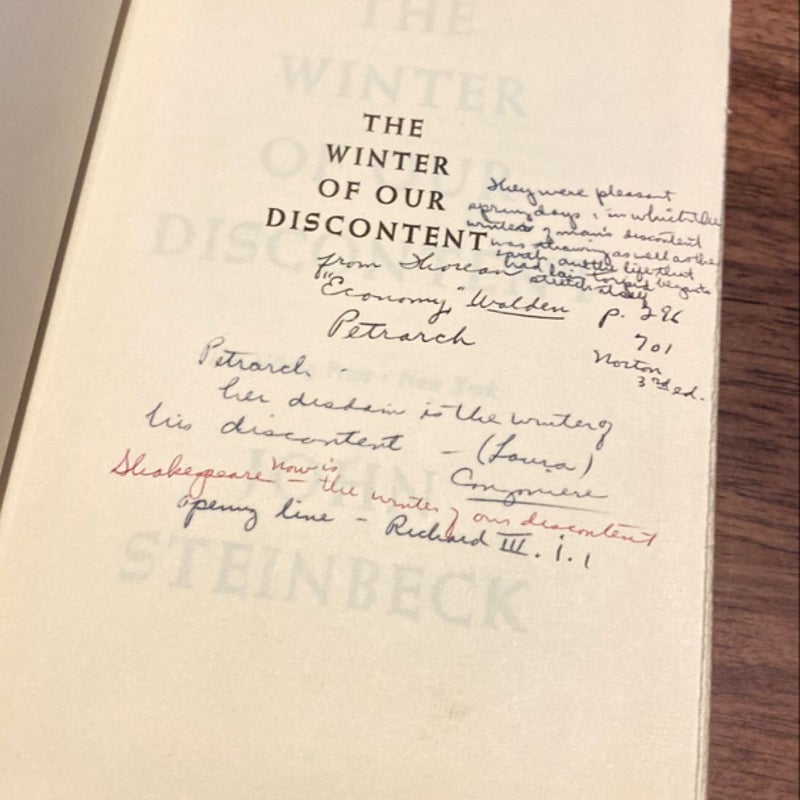 THE
WINTER
OF OUR
DISCONTENT
They were pleasant
spring days, in which the
winter of man's discontent
was thawing as well as the
earth, and the life that
had lain torpid began to
stretch itself
from Thoreau
"Economy," Walden p. 296
701
Norton
3rd ed.
Petrarch
Petrarch.
her disdain is the winter of
his discontent - (Laura)
Canzoniere
Shakespeare - Now is the winter of our discontent
opening line - Richard III. i. 1
THE
WINTER
OF OUR
DISCONTENT
New York
JOHN
STEINBECK